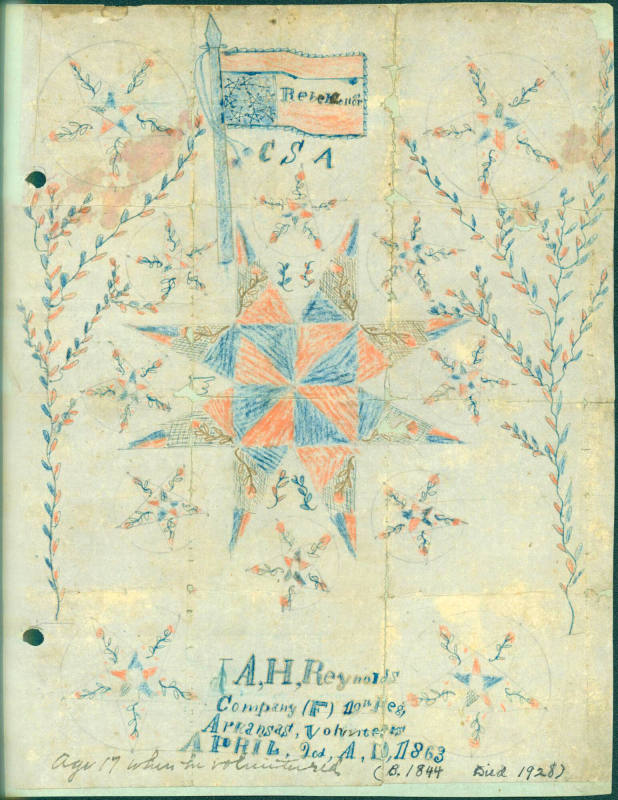 C S A
A, H, Reynolds
Company (F) Reg,
Arkansas, Volunteers
APRIL, A, D, 1863
Age 17 when he volunteered
(B. 1844 Died 1928)